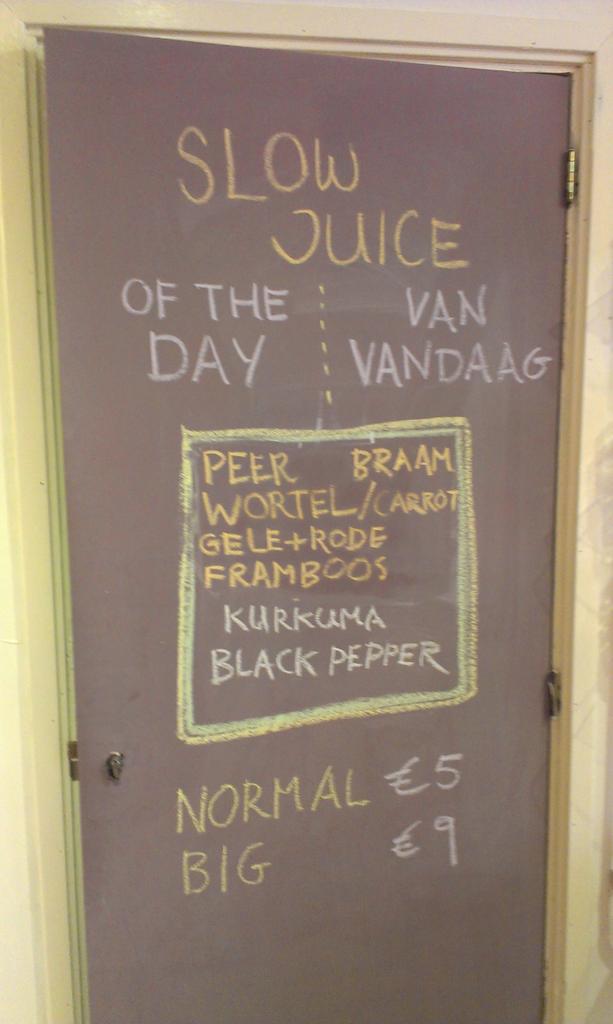 SLOW
JUICE
OF THE
DAY
VAN
VANDAAG
PEER BRAAM
WORTEL/CARROT
GELE+RODE
FRAMBOOS
KURKUMA
BLACK PEPPER
NORMAL €5
BIG €9